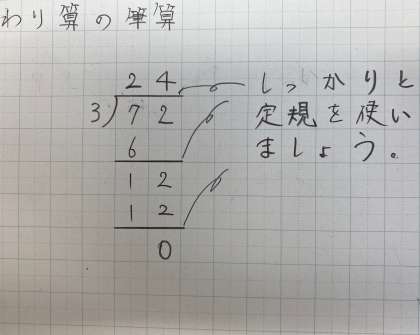 わり算の筆算
24
3)72
6
12
12
0
しっかりと
定規を使い
ましょう。